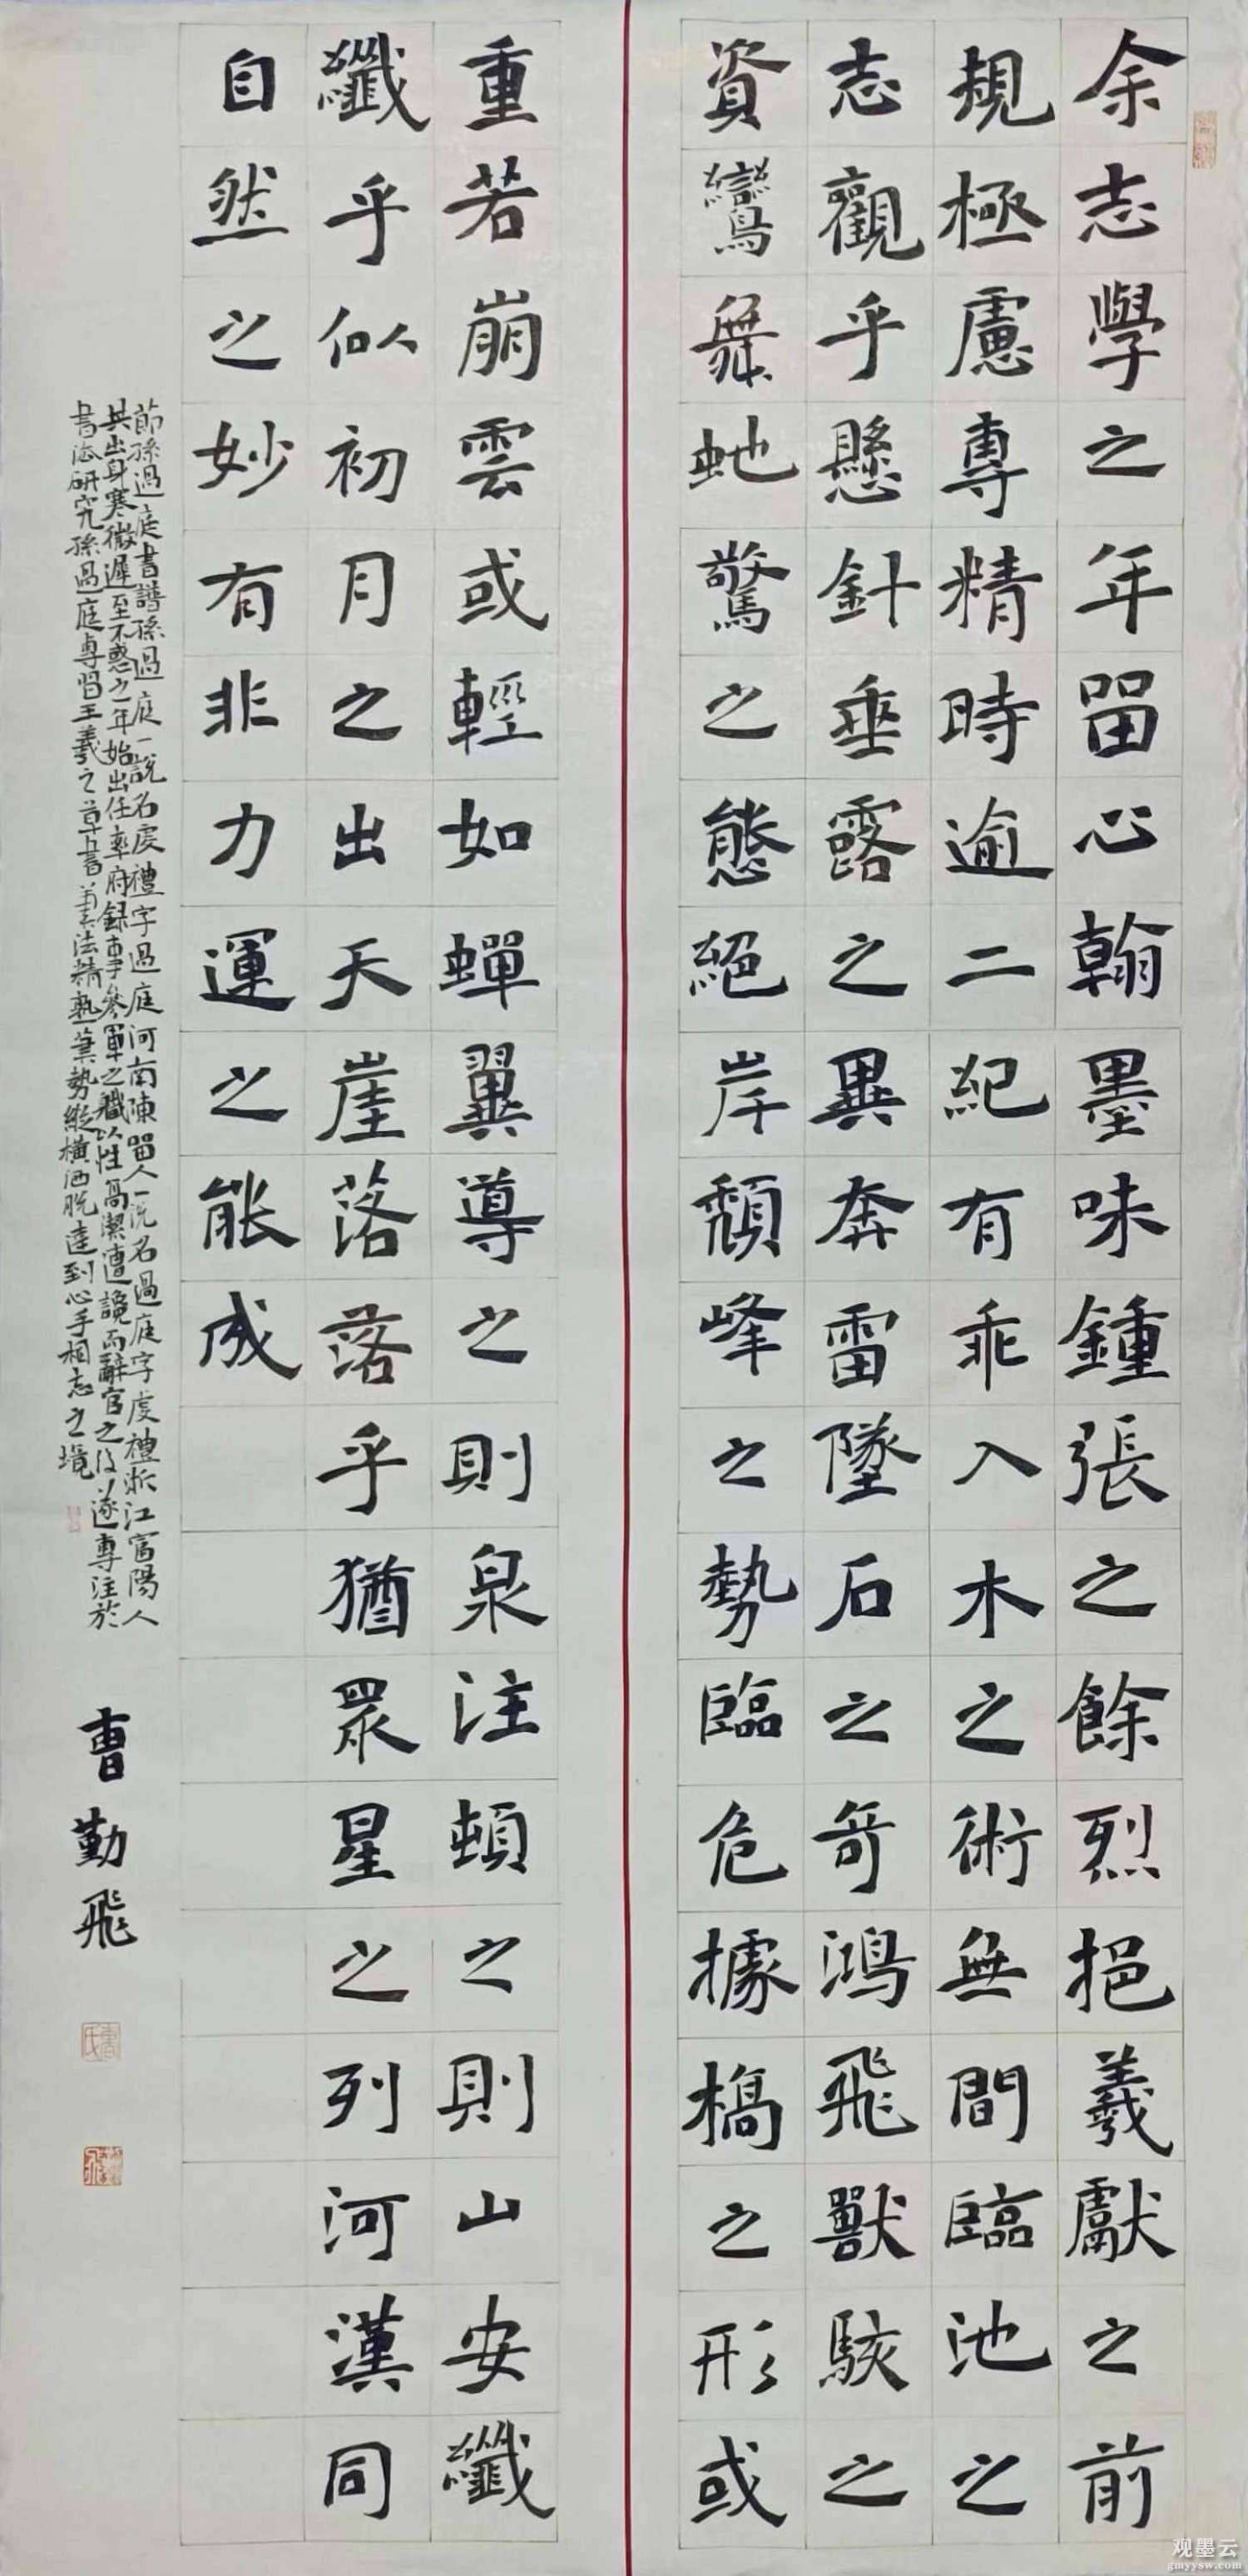 余志學之年留心翰墨味鍾張之餘烈挹羲獻之前
規極慮專精時逾二紀有乖入木之術無間臨池之
志觀乎懸針垂露之異奔雷墜石之奇鴻飛獸駭之
資鸞舞虵驚之態絕岸頹峰之勢臨危據槁之形或
重若崩雲或輕如蟬翼導之則泉注頓之則山安纖
纖乎似初月之出天崖落落乎猶眾星之列河漢同
自然之妙有非力運之能成
節孫過庭書譜孫過庭一說名虔禮字過庭河南陳留人一說名過庭字虔禮浙江富陽人
其出身寒微遲至不惑之年始出任率府録事參軍之職以性高潔遭讒而辭官之後遂專注於
書法研究孫過庭專習王羲之草書筆法精熟筆勢縱橫洒脫達到心手相忘之境
曹勤飛
观墨云
gmyysw.com